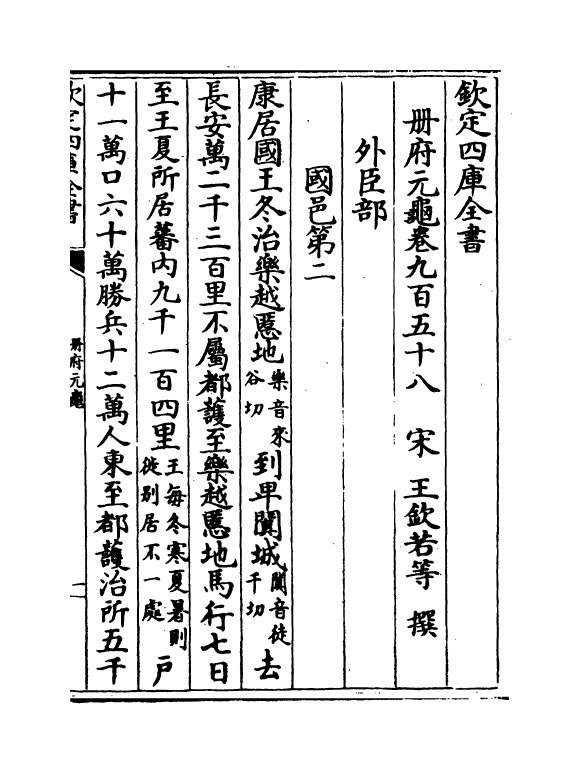 欽定四庫全書
册府元龜卷九百五十八　宋　王欽若等　撰
外臣部
國邑第二
康居國王冬治樂越慝地樂音來谷切到卑闐城闐音徒千切去
長安萬二千三百里不屬都護至樂越慝地馬行七日
至王夏所居蕃内九千一百四里王每冬寒夏暑則徙别居不一處戸
十一萬口六十萬勝兵十二萬人東至都護治所五千
欽定四庫全書
册府元龜
一